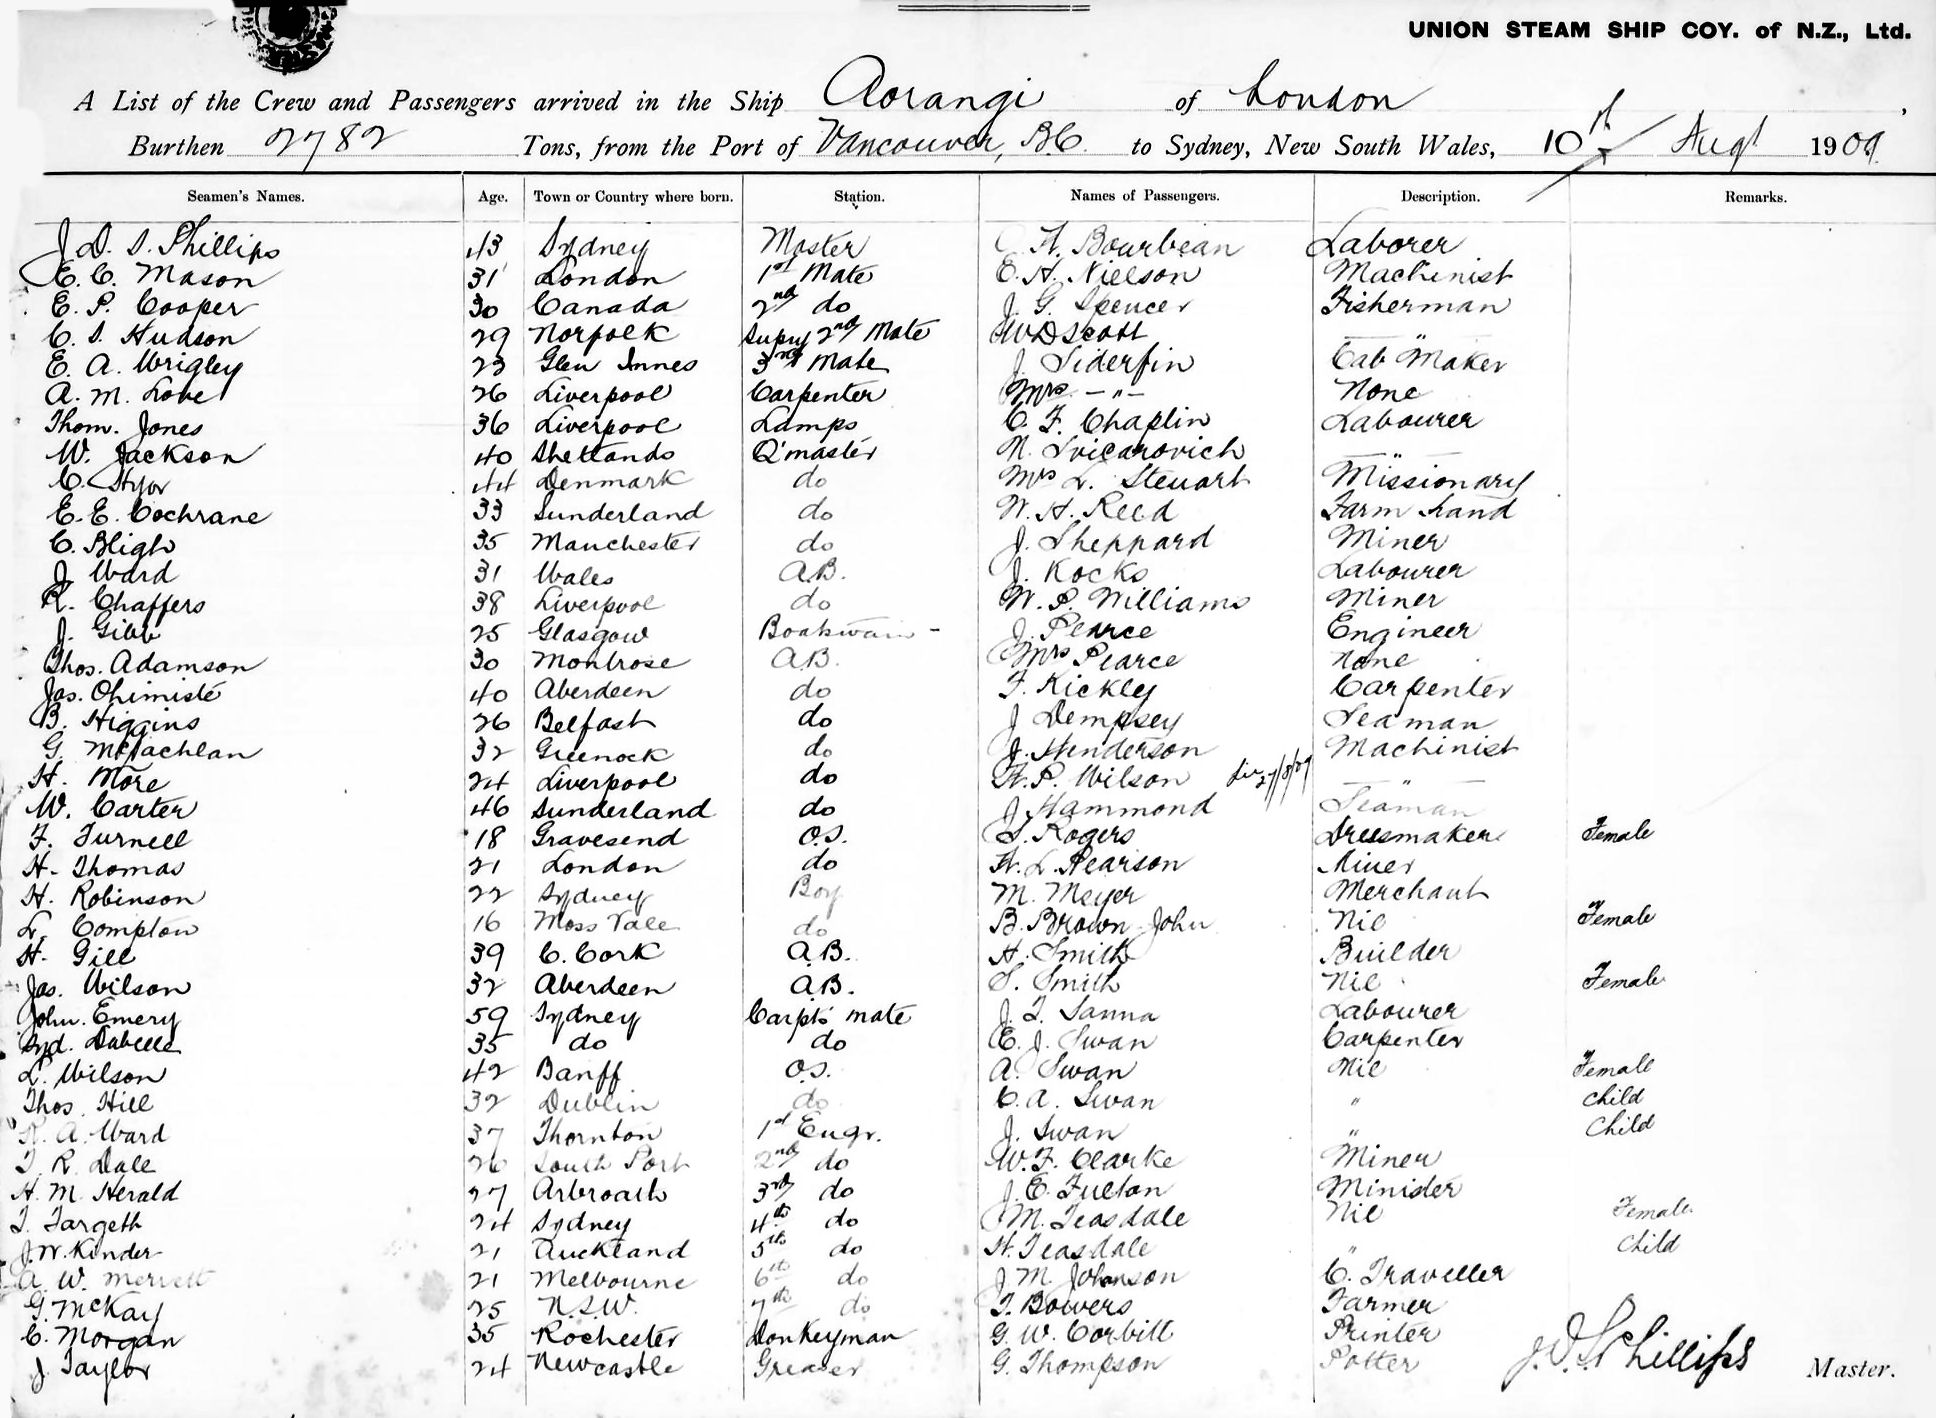 UNION STEAM SHIP COY. of N.Z., Ltd.
A List of the Crew and Passengers arrived in the Ship Aorangi of London,
Burthen 2782 Tons, from the Port of Vancouver, B.C. to Sydney, New South Wales, 10th Augt 1909
Seamen's Names. Age. Town or Country where born. Station. Names of Passengers. Description. Remarks.
J. D. S. Phillips 43 Sydney Master A. Bourbean Laborer
E. C. Mason 31 London 1st Mate E. A. Nielson Machinist
E. P. Cooper 30 Canada 2nd do J. G. Spencer Fisherman
C. S. Hudson 29 Norfolk Supny 2nd Mate W D Scott — " —
E. A. Wrigley 23 Glen Innes 3rd Mate J. Siderfin Cab Maker
A. M. Love 26 Liverpool Carpenter Mrs - " - None
Thom. Jones 36 Liverpool Lamps C. F. Chaplin Labourer
W. Jackson 40 Shetlands Q'master N. Svicarovich — " —
C. 44 Denmark do Mrs L. Steuart Missionary
E. E. Cochrane 33 Sunderland do W. H. Reed Farm hand
C. Bligh 35 Manchester do J. Sheppard Miner
J. Ward 31 Wales A.B. J. Kocks Labourer
R. Chaffers 38 Liverpool do W. P. Williams Miner
J. Gibb 25 Glasgow Boatswain - J. Pearce Engineer
Thos. Adamson 30 Montrose A.B. Mrs Pearce None
Jas. Chimiste 40 Aberdeen do F. Kickley Carpenter
B. Higgins 26 Belfast do J Dempsey Seaman
G. McLachlan 32 Greenock do J. Henderson Machinist
H. More 24 Liverpool do H. P. Wilson — " —
W. Carter 46 Sunderland do J Hammond Seaman
F. Turnell 18 Gravesend O.S. S. Rogers Dressmaker Female
H. Thomas 21 London do H. L. Pearson Miner
H. Robinson 22 Sydney Boy M. Meyer Merchant
L. Compton 16 Moss Vale do B. Brown John Nil Female
H. Gill 39 C. Cork A.B. H. Smith Builder
Jas. Wilson 32 Aberdeen A.B. S. Smith Nil Female
John. Emery 59 Sydney Carpts mate J. T. Sanna Labourer
Syd. 35 do do E. J. Swan Carpenter
L. Wilson 42 Banff O.S. A. Swan Nil Female
Thos. Hill 32 Dublin do C. A. Swan " Child
R. A. Ward 37 Thornton 1st Engr. J. Swan " Child
T. R. Dale 26 South Port 2nd do W. F. Clarke Miner
H. M. Herald 27 Arbroath 3rd do J. E. Fulton Minister
T. Targeth 24 Sydney 4th do M. Teasdale Nil Female
J. W. Kinder 21 Auckland 5th do H. Teasdale " Child
A. W. Merrett 21 Melbourne 6th do J. M. Johnson C. Traveller
G. McKay 25 N.S.W. 7th do T. Bowers Farmer
C. Morgan 35 Rochester Donkeyman G. W. Corbitt Printer
J Taylor 24 Newcastle Greaser G. Thompson Potter
J. D. S. Phillips Master.